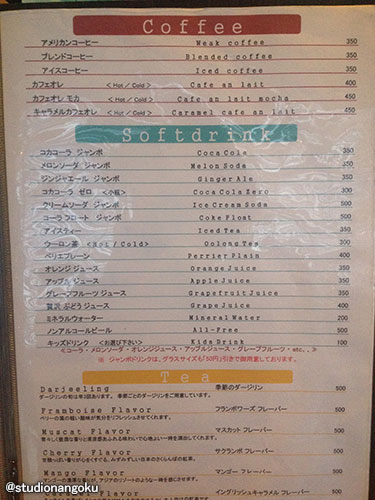 Coffee
アメリカンコーヒー Weak coffee 350
ブレンドコーヒー Blended coffee 350
アイスコーヒー Iced coffee 350
カフェオレ <Hot / Cold> Cafe an lait 400
カフェオレ モカ <Hot / Cold> Cafe an lait mocha 450
キャラメルカフェオレ <Hot / Cold> Caramel cafe an lait 450
Softdrink
コカコーラ ジャンボ Coca Cola 350
メロンソーダ ジャンボ Melon Soda 350
ジンジャエール ジャンボ Ginger Ale 350
コカコーラ ゼロ <小瓶> Coca Cola Zero 300
クリームソーダ ジャンボ Ice Cream Soda 500
コーラフロート ジャンボ Coke Float 500
アイスティー Iced Tea 350
ウーロン茶 <Hot / Cold> Oolong Tea 300
ペリエプレーン Perrier Plain 400
オレンジジュース Orange Juice 350
アップルジュース Apple Juice 350
グレープフルーツジュース Grapefruit Juice 350
贅沢 ぶどうジュース Grape Juice 400
ミネラルウォーター Mineral Water 200
ノンアルコールビール All-Free 500
キッズドリンク <お選び下さい> Kids Drink 100
<コーラ・メロンソーダ・オレンジジュース・アップルジュース・グレープフルーツ・etc、、>
※ ジャンボドリンクは、グラスサイズも「50円」引きで御用意しております。
Tea
Darjeeling 季節のダージリン 500
ダージリンの旬は年3回あります。季節ごとのダージリンをご用意しています。
Framboise Flavor フランボワーズ フレーバー 500
ベリーの葉の軽い酸味が気分をリフレッシュさせてくれます。
Muscat Flavor マスカット フレーバー 500
Cherry Flavor サクランボ フレーバー 500
Mango Flavor マンゴー フレーバー 500
Flavor イングリッシュキャラメル フレーバー 500
@studionangoku